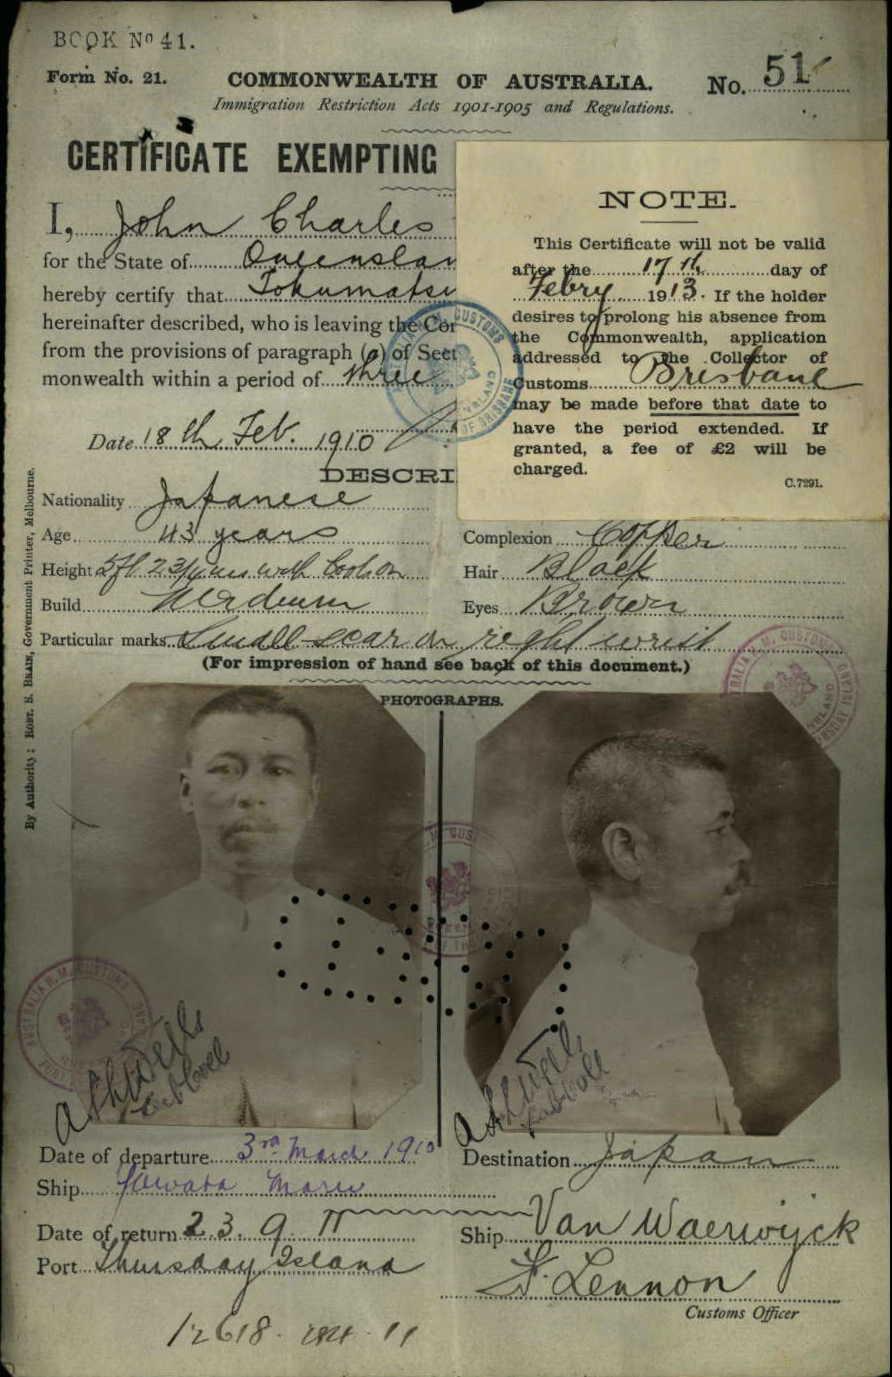 BOOK No 41.
Form No. 21.
COMMONWEALTH OF AUSTRALIA.
No. 51
Immigration Restriction Acts 1901-1905 and Regulations.
CERTIFICATE EXEMPTING
I, John Charles
for the State of Queenslan
hereby certify that Tokumatsu
hereinafter described, who is leaving the Co
from the provisions of paragraph (a) of Sect
monwealth within a period of three
Date 18th Feb. 1910
DESCRI
NOTE.
This Certificate will not be valid
after the 17th day of
Febry 1913. If the holder
desires to prolong his absence from
the Commonwealth, application
addressed to the Collector of
Customs Brisbane
may be made before that date to
have the period extended. If
granted, a fee of £2 will be
charged.
C.7291.
Nationality Japanese
Age 43 years
Height 5ft 2 3/4 ins with boots on
Build Medium
Complexion Copper
Hair Black
Eyes Brown
Particular marks Small scar on right wrist
(For impression of hand see back of this document.)
PHOTOGRAPHS.
By Authority: ROBT. S. BRAIN, Government Printer, Melbourne.
Date of departure 3rd March 1910
Destination Japan
Ship Yawata Maru
Date of return 23.9.11
Ship Van Waerwijck
Port Thursday Island
F. Lennon
Customs Officer
12618